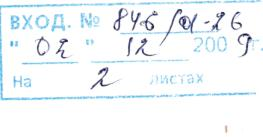 ВХОД. № 846/01-26
"02" 12 2009 г.
На 2 листах